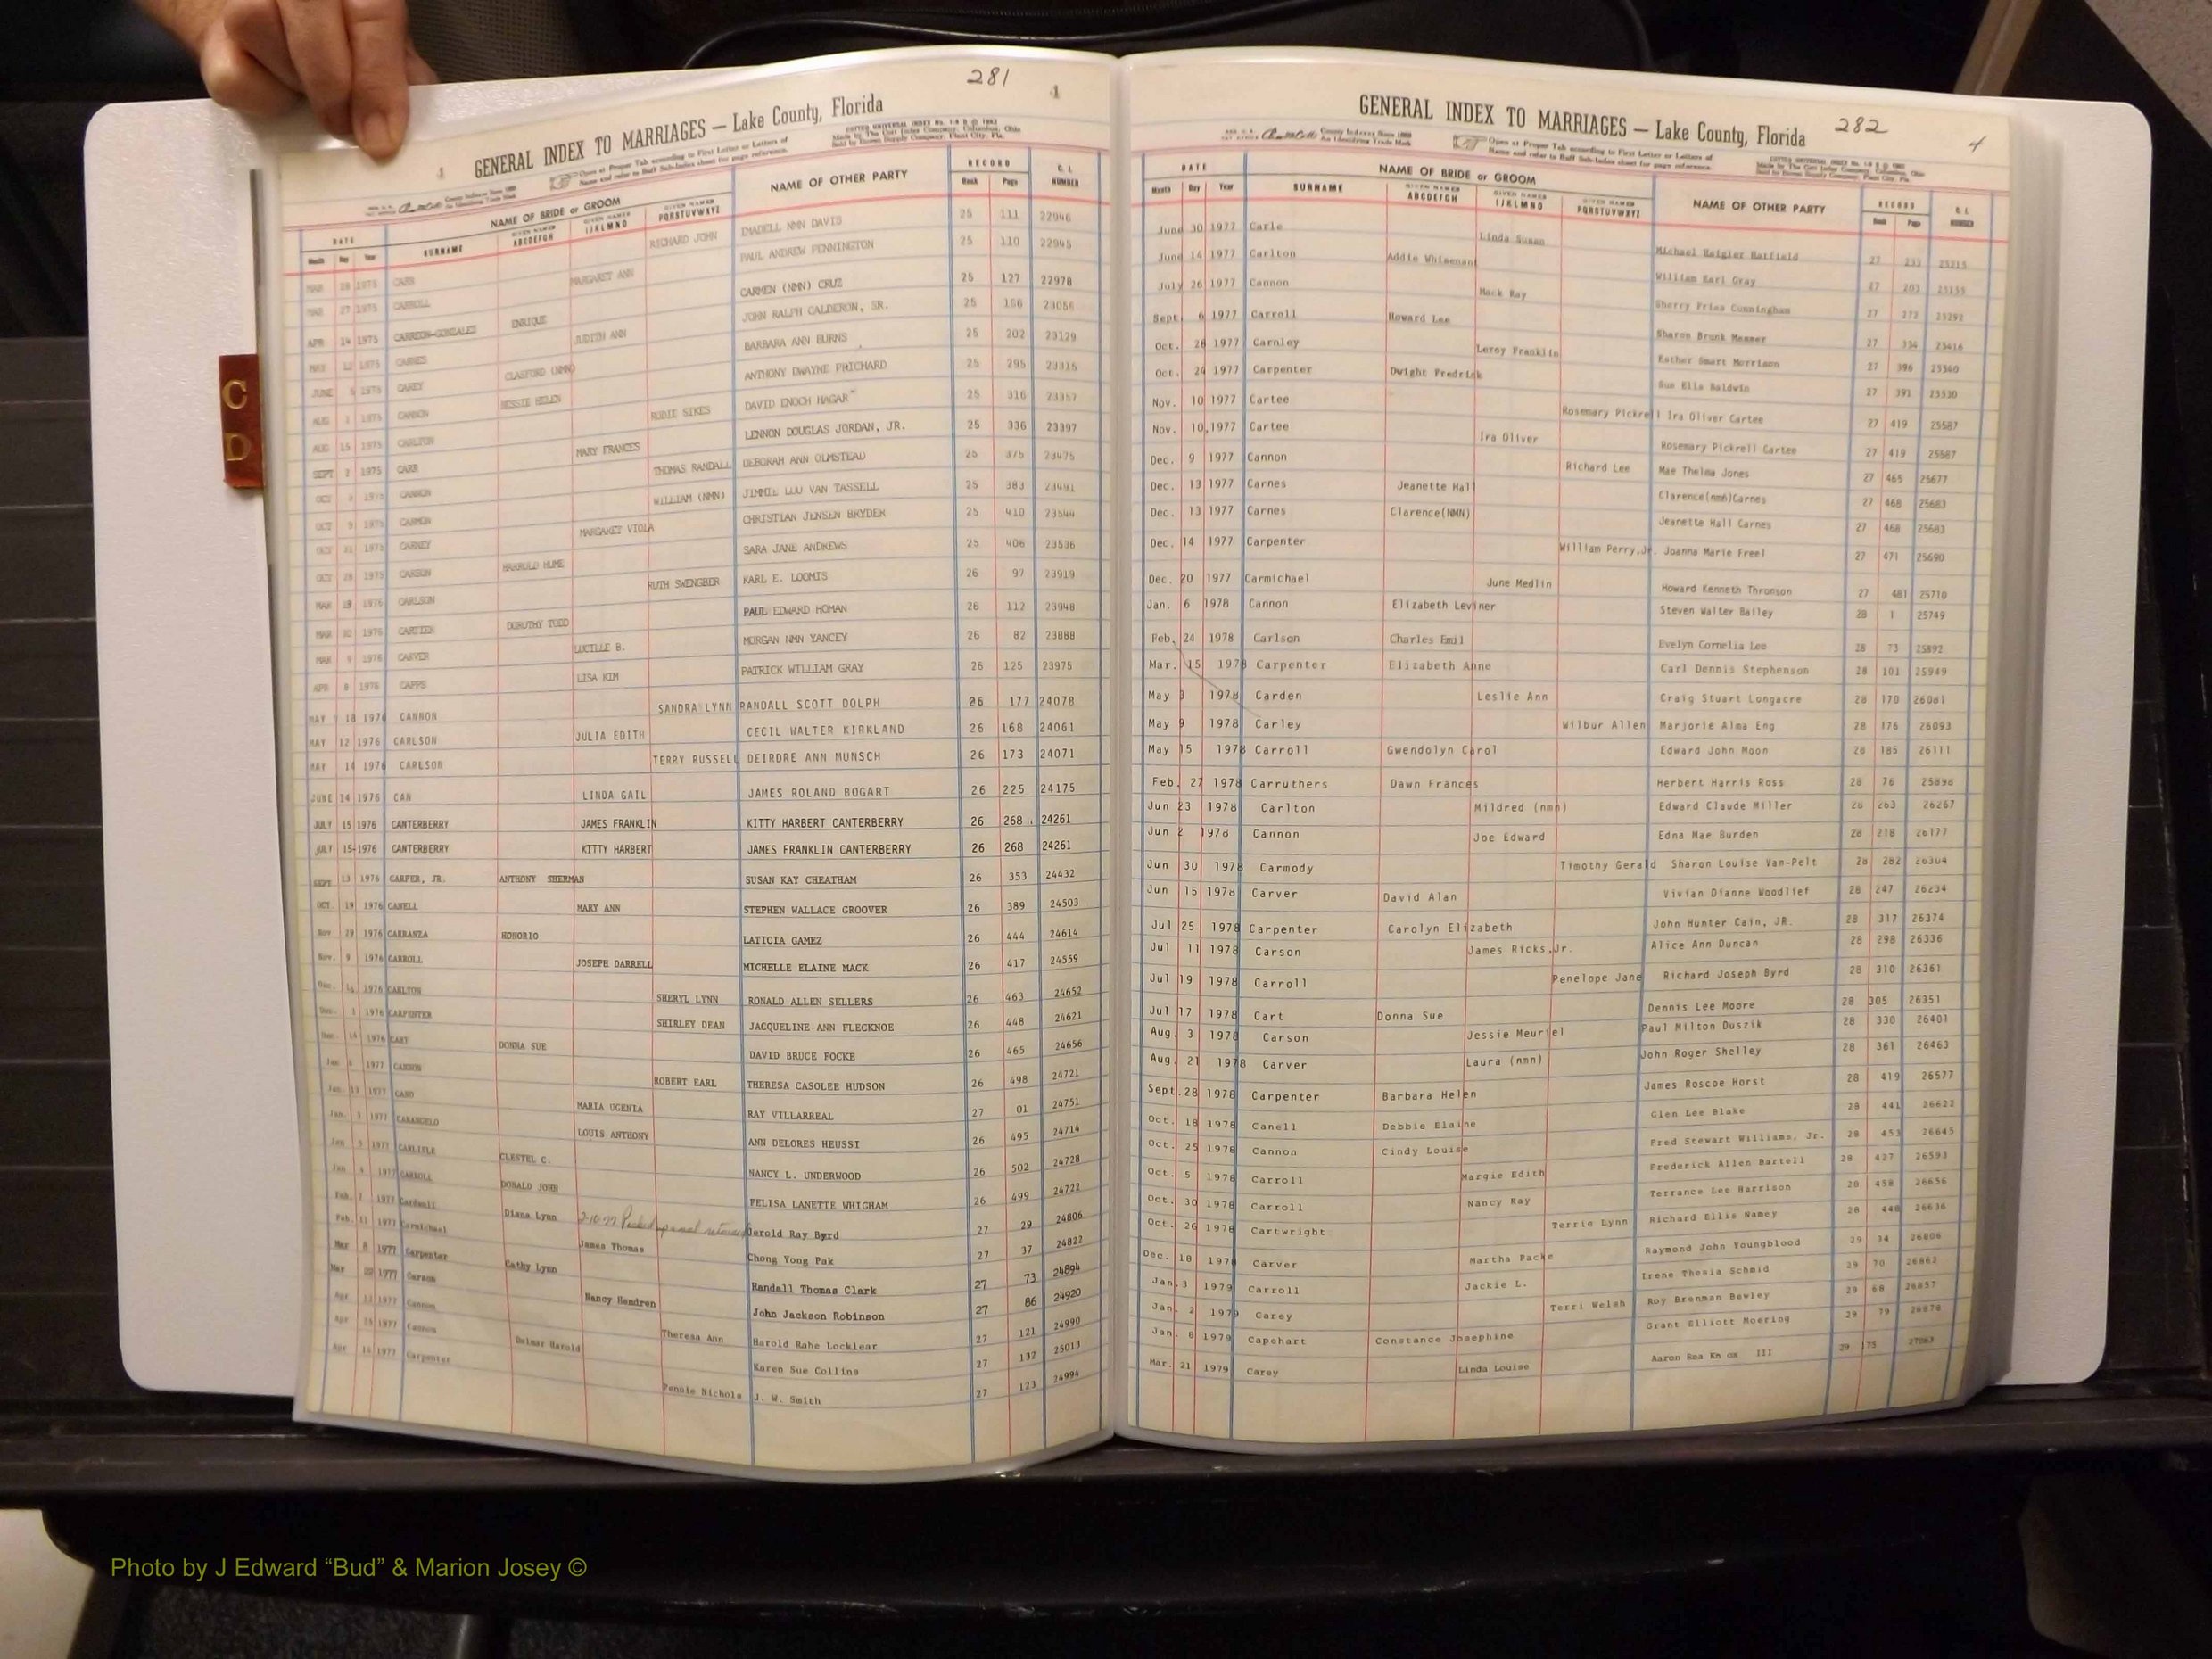 281
GENERAL INDEX TO MARRIAGES — Lake County, Florida
DATE NAME OF BRIDE or GROOM NAME OF OTHER PARTY RECORD C. L.
Month Day Year SURNAME GIVEN NAMES ABCDEFGH GIVEN NAMES IJKLMNO GIVEN NAMES PQRSTUVWXYZ Book Page NUMBER
MAR 1975 CARR RICHARD JOHN IMADELL NMN DAVIS 25 111 22946
MAR 27 1975 CARROLL MARGARET ANN PAUL ANDREW PENNINGTON 25 110 22945
APR 14 1975 CARREON-GONZALES ENRIQUE CARMEN (NMN) CRUZ 25 127 22978
MAY 12 1975 CARNES JUDITH ANN JOHN RALPH CALDERON, SR. 25 166 23056
JUNE 1975 CAREY CLASFORD (NMN) BARBARA ANN BURNS 25 202 23129
AUG 1 1975 CANNON BESSIE HELEN ANTHONY DWAYNE PRICHARD 25 295 23315
AUG 15 1975 CARLTON RODIE SIKES DAVID ENOCH HAGAR 25 316 23357
SEPT 2 1975 CARR MARY FRANCES LENNON DOUGLAS JORDAN, JR. 25 336 23397
OCT 1975 CANNON THOMAS RANDALL DEBORAH ANN OLMSTEAD 25 375 23475
OCT 9 1975 CARMON WILLIAM (NMN) JIMMIE LOU VAN TASSELL 25 383 23491
OCT 1975 CARNEY MARGARET VIOLA CHRISTIAN JENSEN BRYDER 25 410 23544
OCT 28 1975 CARSON HARROLD HUME SARA JANE ANDREWS 25 406 23536
MAR 19 1976 CARLSON RUTH SWENGBER KARL E. LOOMIS 26 97 23919
MAR 30 1976 CARTIER DOROTHY TODD PAUL EDWARD HOMAN 26 112 23948
MAR 9 1976 CARVER LUCILLE B. MORGAN NMN YANCEY 26 82 23888
APR 8 1976 CAPPS LISA KIM PATRICK WILLIAM GRAY 26 125 23975
MAY 18 1976 CANNON SANDRA LYNN RANDALL SCOTT DOLPH 26 177 24078
MAY 12 1976 CARLSON JULIA EDITH CECIL WALTER KIRKLAND 26 168 24061
MAY 14 1976 CARLSON TERRY RUSSELL DEIRDRE ANN MUNSCH 26 173 24071
JUNE 14 1976 CAN LINDA GAIL JAMES ROLAND BOGART 26 225 24175
JULY 15 1976 CANTERBERRY JAMES FRANKLIN KITTY HARBERT CANTERBERRY 26 268 24261
JULY 15-1976 CANTERBERRY KITTY HARBERT JAMES FRANKLIN CANTERBERRY 26 268 24261
SEPT 13 1976 CARPER, JR. ANTHONY SHERMAN SUSAN KAY CHEATHAM 26 353 24432
OCT. 19 1976 CANELL MARY ANN STEPHEN WALLACE GROOVER 26 389 24503
Nov 29 1976 CARRANZA HONORIO LATICIA GAMEZ 26 444 24614
Nov. 9 1976 CARROLL JOSEPH DARRELL MICHELLE ELAINE MACK 26 417 24559
Dec. 14 1976 CARLTON SHERYL LYNN RONALD ALLEN SELLERS 26 463 24652
Dec. 1 1976 CARPENTER SHIRLEY DEAN JACQUELINE ANN FLECKNOE 26 448 24621
Dec. 1976 CART DONNA SUE DAVID BRUCE FOCKE 26 465 24656
Jan 1977 CANNON ROBERT EARL THERESA CASOLEE HUDSON 26 498 24721
Jan. 13 1977 CANO MARIA UGENIA RAY VILLARREAL 27 01 24751
Jan. 1977 CARANGELO LOUIS ANTHONY ANN DELORES HEUSSI 26 495 24714
Jan 1977 CARLISLE CLESTEL C. NANCY L. UNDERWOOD 26 502 24728
Jan 1977 CARROLL DONALD JOHN FELISA LANETTE WHIGHAM 26 499 24722
Feb. 7 1977 Cardwell Diana Lynn Jerold Ray Byrd 27 29 24806
Feb. 11 1977 Carmichael James Thomas Chong Yong Pak 27 37 24822
Mar 8 1977 Carpenter Cathy Lynn Randall Thomas Clark 27 73 24894
Mar 22 1977 Carson Nancy Hendren John Jackson Robinson 27 86 24920
Apr 1977 Cannon Theresa Ann Harold Rahe Locklear 27 121 24990
Apr 1977 Cannon Delmar Harold Karen Sue Collins 27 132 25013
Apr 1977 Carpenter Pennie Nichols J. W. Smith 27 123 24994
C
D
282
4
GENERAL INDEX TO MARRIAGES — Lake County, Florida
DATE NAME OF BRIDE or GROOM NAME OF OTHER PARTY RECORD C. L.
Month Day Year SURNAME GIVEN NAMES ABCDEFGH GIVEN NAMES IJKLMNO GIVEN NAMES PQRSTUVWXYZ Book Page NUMBER
June 30 1977 Carle Linda Susan Michael Haigler Hatfield 27 233 25215
June 14 1977 Carlton Addie Whisenant William Earl Gray 27 203 25155
July 26 1977 Cannon Mack Ray Sherry Fries Cunningham 27 272 25292
Sept. 6 1977 Carroll Howard Lee Sharon Brunk Messer 27 334 25416
Oct. 28 1977 Carnley Leroy Franklin Esther Smart Morrison 27 396 25540
Oct. 24 1977 Carpenter Dwight Fredrick Sue Ella Baldwin 27 391 25530
Nov. 10 1977 Cartee Rosemary Pickrell Ira Oliver Cartee 27 419 25587
Nov. 10,1977 Cartee Ira Oliver Rosemary Pickrell Cartee 27 419 25587
Dec. 9 1977 Cannon Richard Lee Mae Thelma Jones 27 465 25677
Dec. 13 1977 Carnes Jeanette Hall Clarence(nmn)Carnes 27 468 25683
Dec. 13 1977 Carnes Clarence(NMN) Jeanette Hall Carnes 27 468 25683
Dec. 14 1977 Carpenter William Perry,Jr. Joanna Marie Freel 27 471 25690
Dec. 20 1977 Carmichael June Medlin Howard Kenneth Thronson 27 481 25710
Jan. 6 1978 Cannon Elizabeth Leviner Steven Walter Bailey 28 1 25749
Feb. 24 1978 Carlson Charles Emil Evelyn Cornelia Lee 28 73 25892
Mar. 15 1978 Carpenter Elizabeth Anne Carl Dennis Stephenson 28 101 25949
May 3 1978 Carden Leslie Ann Craig Stuart Longacre 28 170 26081
May 9 1978 Carley Wilbur Allen Marjorie Alma Eng 28 176 26093
May 15 1978 Carroll Gwendolyn Carol Edward John Moon 28 185 26111
Feb. 27 1978 Carruthers Dawn Frances Herbert Harris Ross 28 76 25898
Jun 23 1978 Carlton Mildred (nmn) Edward Claude Miller 28 263 26267
Jun 2 1978 Cannon Joe Edward Edna Mae Burden 28 218 26177
Jun 30 1978 Carmody Timothy Gerald Sharon Louise Van-Pelt 28 282 26304
Jun 15 1978 Carver David Alan Vivian Dianne Woodlief 28 247 26234
Jul 25 1978 Carpenter Carolyn Elizabeth John Hunter Cain, JR. 28 317 26374
Jul 11 1978 Carson James Ricks,Jr. Alice Ann Duncan 28 298 26336
Jul 19 1978 Carroll Penelope Jane Richard Joseph Byrd 28 310 26361
Jul 17 1978 Cart Donna Sue Dennis Lee Moore 28 305 26351
Aug. 3 1978 Carson Jessie Meuriel Paul Milton Duszik 28 330 26401
Aug. 21 1978 Carver Laura (nmn) John Roger Shelley 28 361 26463
Sept.28 1978 Carpenter Barbara Helen James Roscoe Horst 28 419 26577
Oct. 18 1978 Canell Debbie Elaine Glen Lee Blake 28 441 26622
Oct. 25 1978 Cannon Cindy Louise Fred Stewart Williams, Jr. 28 453 26645
Oct. 5 1978 Carroll Margie Edith Frederick Allen Bartell 28 427 26593
Oct. 30 1978 Carroll Nancy Kay Terrance Lee Harrison 28 458 26656
Oct. 26 1978 Cartwright Terrie Lynn Richard Ellis Namey 28 448 26636
Dec. 18 1978 Carver Martha Packe Raymond John Youngblood 29 34 26806
Jan.3 1979 Carroll Jackie L. Irene Thenia Schmid 29 70 26862
Jan. 2 1979 Carey Terri Welsh Roy Brenman Bewley 29 68 26857
Jan. 8 1979 Capehart Constance Josephine Grant Elliott Moering 29 79 26878
Mar. 21 1979 Carey Linda Louise Aaron Rea Kn ox III 29 175 27063
Photo by J Edward “Bud” & Marion Josey ©